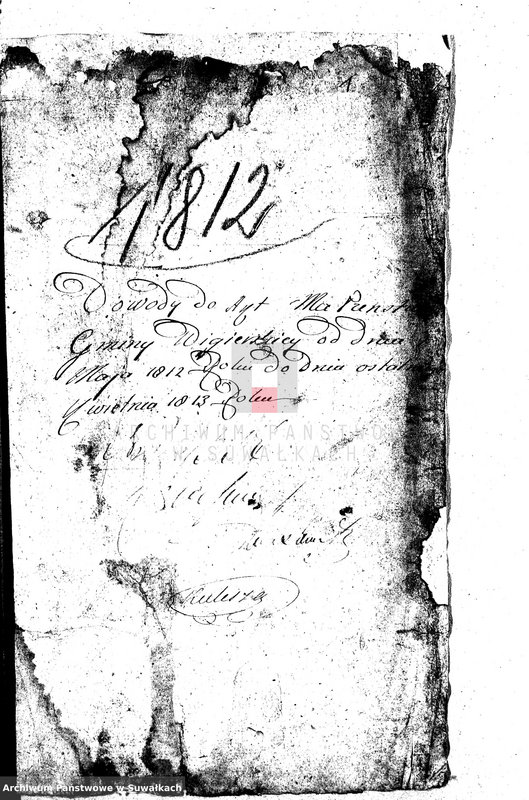 1
1812
Dowody do Akt Małżeńst
Gminy Wigierskiey od dnia
Maja 1812 Roku do dnia ostat
Kwietnia 1813 Roku
ARCHIWUM PAŃSTWO
W SUWAŁKACH
Kulesza
Archiwum Państwowe w Suwałkach